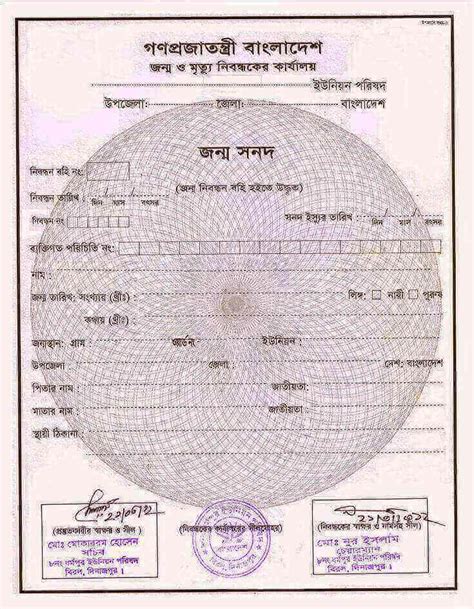 গণপ্রজাতন্ত্রী বাংলাদেশ
জন্ম ও মৃত্যু নিবন্ধকের কার্যালয়
ইউনিয়ন পরিষদ
উপজেলা: জেলা: বাংলাদেশ
জন্ম সনদ
নিবন্ধন বহি নং:
(জন্ম নিবন্ধন বহি হইতে উদ্ধৃত)
নিবন্ধন তারিখ: দিন / মাস / বৎসর
নিবন্ধন নং সনদ ইস্যুর তারিখ: দিন / মাস / বৎসর
ব্যক্তিগত পরিচিতি নং:
নাম :
জন্ম তারিখ: সংখ্যায় (খ্রীঃ) লিঙ্গ: নারী পুরুষ
কথায় (খ্রীঃ)
জন্মস্থান: গ্রাম : ওয়ার্ডনং: ইউনিয়ন :
উপজেলা : জেলা : দেশ: বাংলাদেশ
পিতার নাম : জাতীয়তা:
মাতার নাম : জাতীয়তা:
স্থায়ী ঠিকানা :
(প্রস্তুতকারীর স্বাক্ষর ও সীল)
মোঃ মোকাররম হোসেন
সচিব
৮নং ধর্মপুর ইউনিয়ন পরিষদ
বিরল, দিনাজপুর।
(নিবন্ধকের কার্যালয়ের সীলমোহর)
বাংলাদেশ
(নিবন্ধকের স্বাক্ষর ও নামসহ সীল)
মোঃ নুর ইসলাম
চেয়ারম্যান
৮নং ধর্মপুর ইউনিয়ন পরিষদ
বিরল, দিনাজপুর।